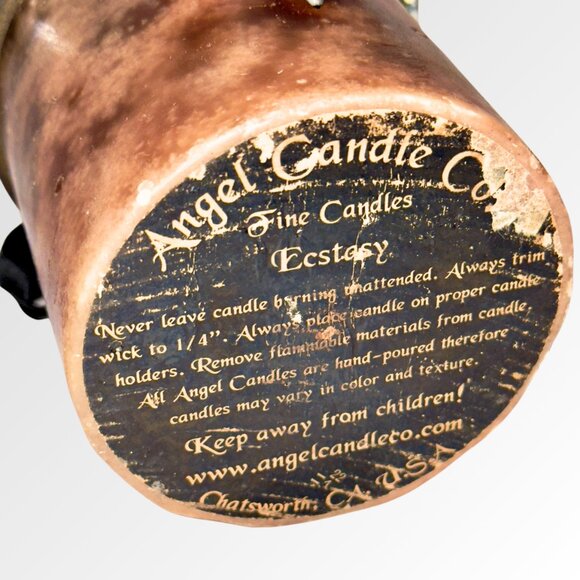 Angel Candle Co
Fine Candles
Ecstasy
Never leave candle burning unattended. Always trim
wick to 1/4". Always place candle on proper candle
holders. Remove flammable materials from candle.
All Angel Candles are hand-poured therefore
candles may vary in color and texture.
Keep away from children!
www.angelcandleco.com
Chatsworth, CA USA